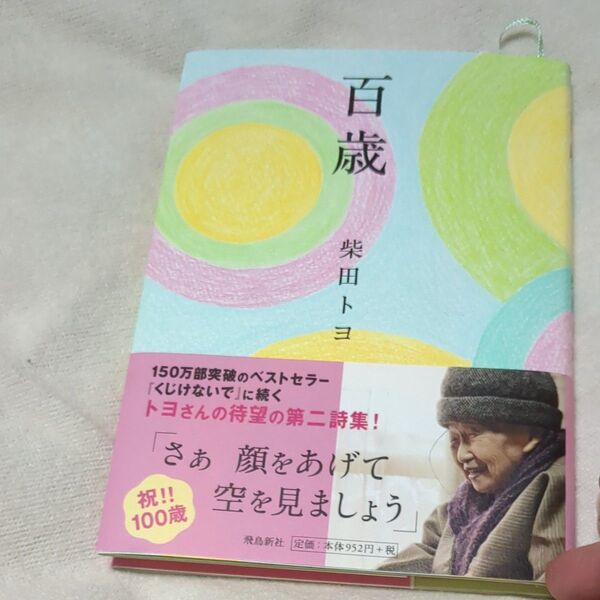 百歳
柴田トヨ
150万部突破のベストセラー
『くじけないで』に続く
トヨさんの待望の第二詩集!
「さぁ 顔をあげて
空を見ましょう」
祝!!
100歳
飛鳥新社
定価:本体952円+税